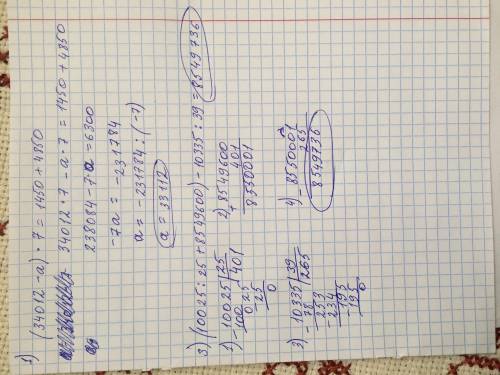 1) (34012-a) · 7 = 1450 + 4850
34012 · 7 - a · 7 = 1450 + 4850
238084 - 7 · a = 6300
-7a = -231784
a = -231784 : (-7)
a = 33112
3) (10025 : 25 + 8549600) - 10335 : 39 = 8549736
1) 10025 | 25
100 | 401
025
-25
0
2) 8549600
+ 401
8550001
3) -10335 | 39
78 | 265
-253
-234
-195
-195
0
4) -8550001
265
8549736